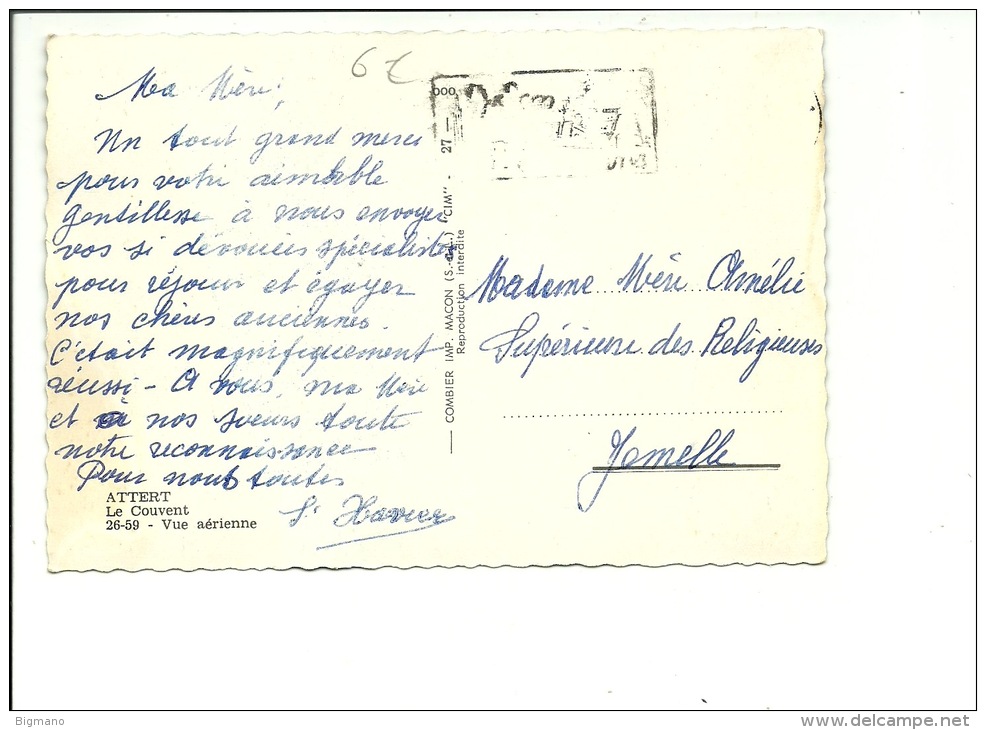 6 €
Ma Mère,
Un tout grand merci
pour votre aimable
gentillesse à nous envoyer
vos si dévouées spécialistes
pour réjouir et égayer
nos chères anciennes.
C'était magnifiquement
réussi - A vous, ma Mère
et à nos soeurs toute
notre reconnaissance
Pour nous toutes
Sr Xavier
ATTERT
Le Couvent
26-59 - Vue aérienne
COMBIER IMP. MACON (S.-et-L.) "CIM" - 27 —
Reproduction Interdite
Madame Mère Amélie
Supérieure des Religieuses
Jemelle
Bigmano
www.delcampe.net